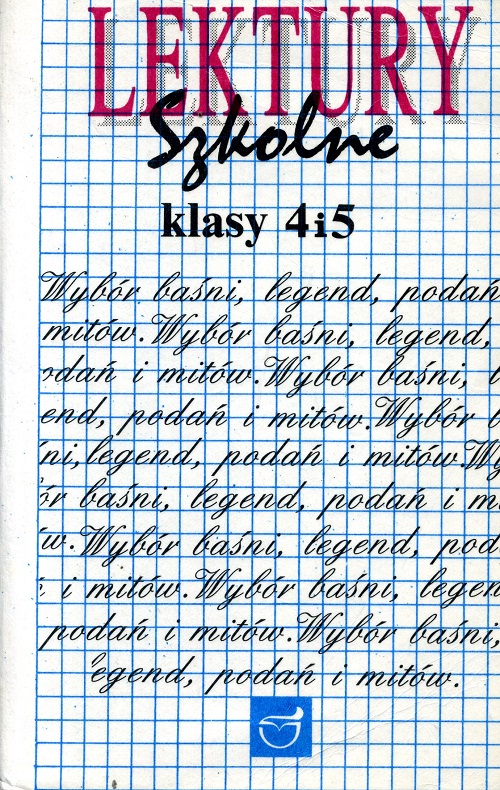 LEKTURY
Szkolne
klasy 4i5
Wybór baśni, legend, podań
mitów. Wybór baśni, legend,
odań i mitów. Wybór baśni, l
end, podań i mitów. Wybór b
ni, legend, podań i mitów. Wy
ór baśni, legend, podań i m
w. Wybór baśni, legend, pod
i mitów. Wybór baśni, legen
podań i mitów. Wybór baśni,
egend, podań i mitów.